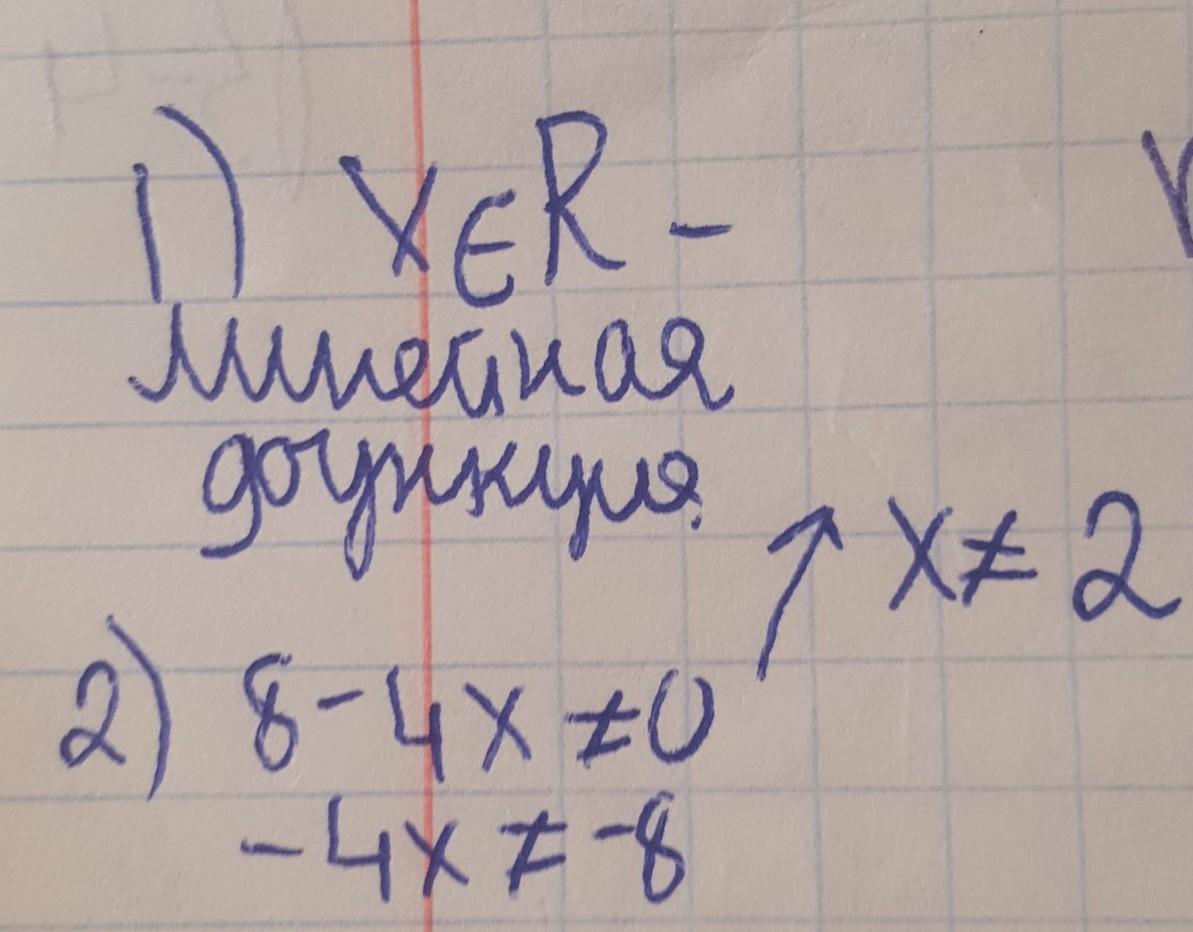 1) x∈R -
линейная
функция.
2) 8-4x≠0 ↗ x≠2
-4x≠-8